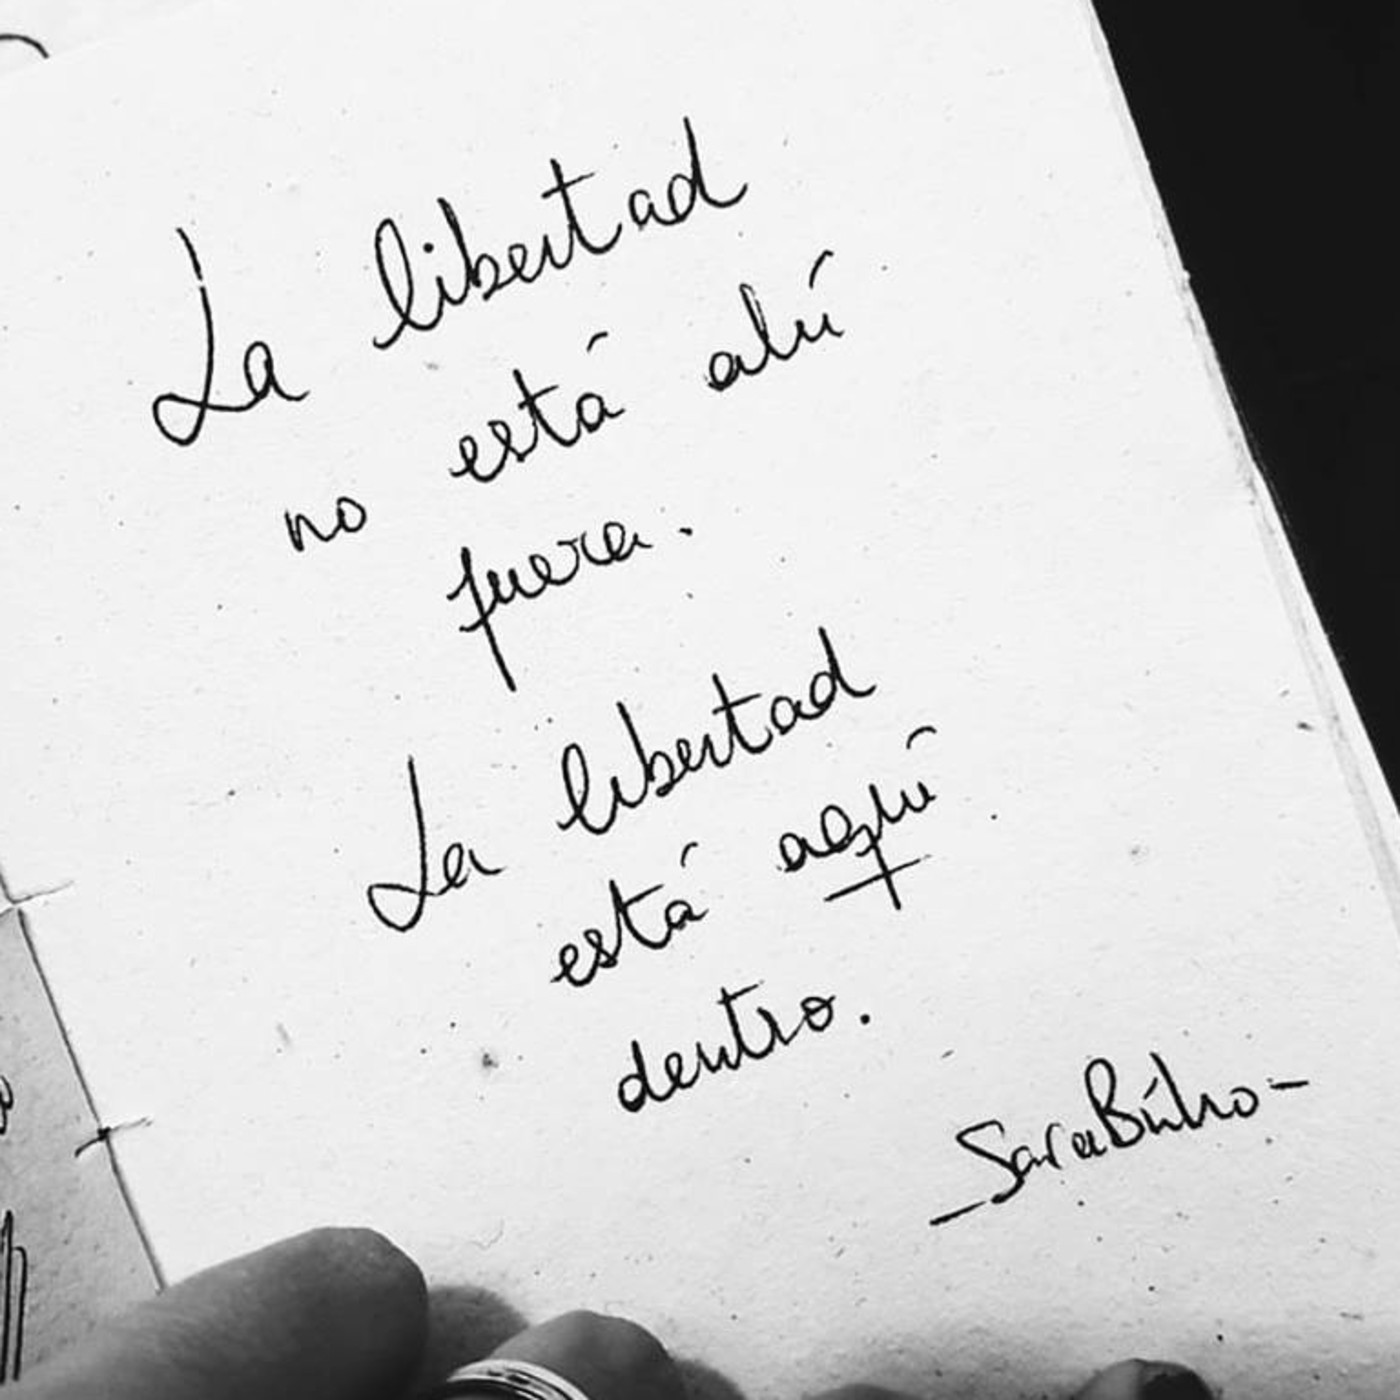 La libertad
no está ahí
fuera.
La libertad
está aquí
dentro.
_SaraBúho-